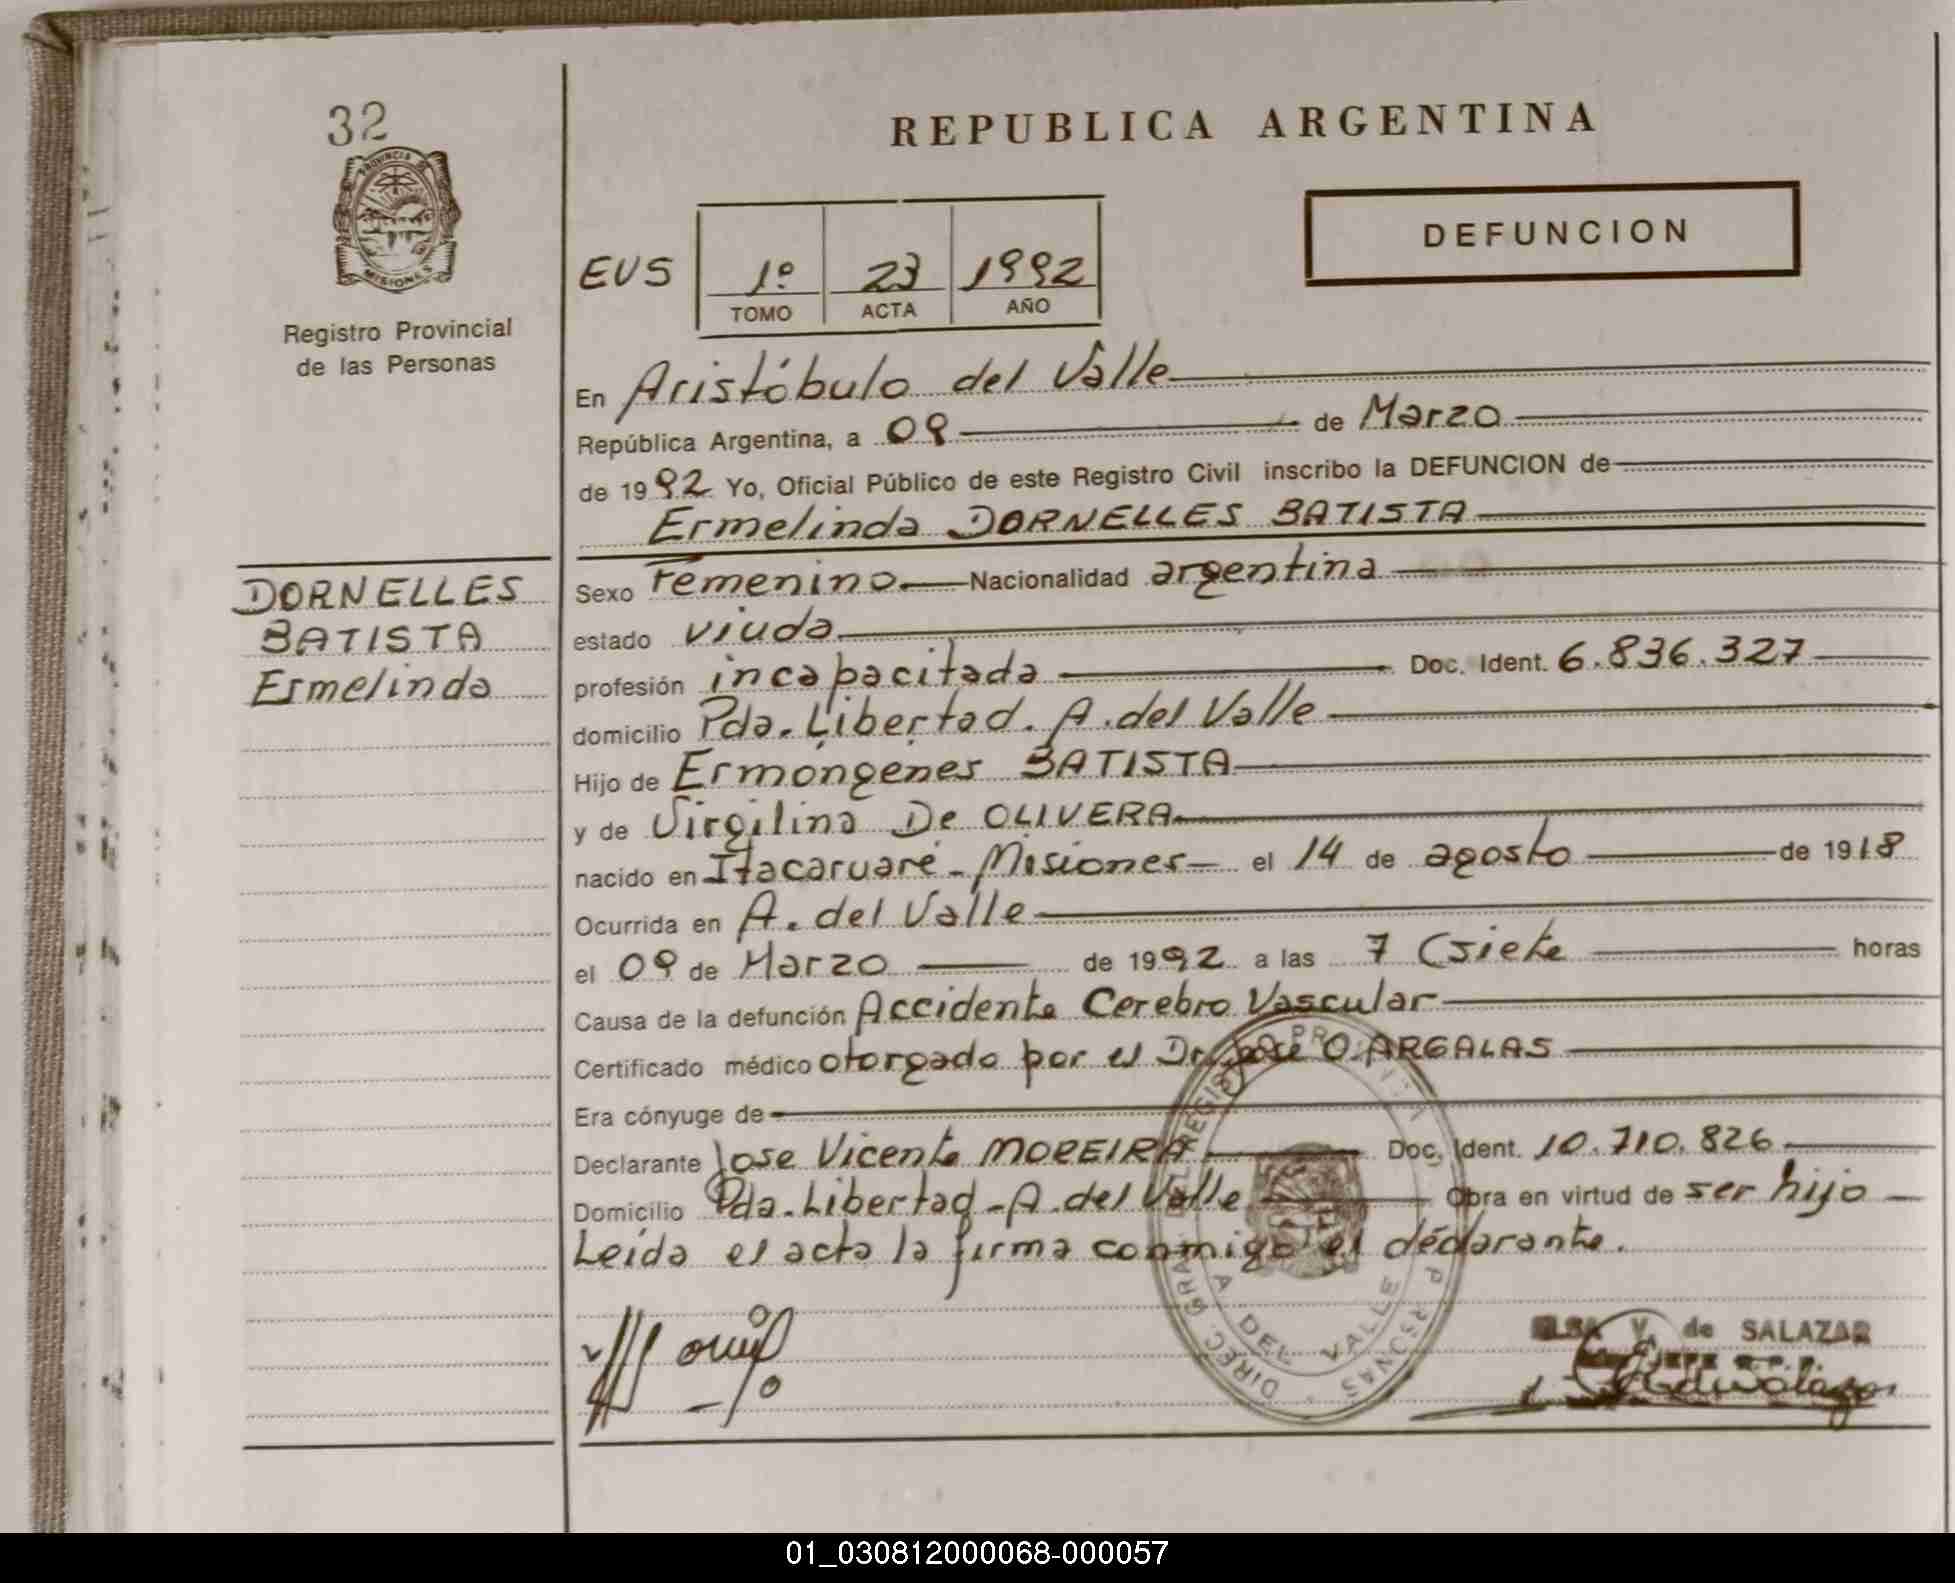 32
PROVINCIA DE
MISIONES
Registro Provincial
de las Personas
REPUBLICA ARGENTINA
DEFUNCION
EVS 1º 23 1992
TOMO ACTA AÑO
En Aristóbulo del Valle
República Argentina, a 09 de Marzo
de 1992 Yo, Oficial Público de este Registro Civil inscribo la DEFUNCION de
Ermelinda DORNELLES BATISTA
DORNELLES
BATISTA
Ermelinda
Sexo Femenino Nacionalidad argentina
estado viuda
profesión incapacitada Doc. Ident. 6.836.327
domicilio Pda. Libertad. A. del Valle
Hijo de Ermongenes BATISTA
y de Virgilina De OLIVERA
nacido en Itacaruaré - Misiones el 14 de agosto de 1918
Ocurrida en A. del Valle
el 09 de Marzo de 1992 a las 7 (siete horas
Causa de la defunción Accidente Cerebro Vascular
Certificado médico otorgado por el Dr. Jose O. ARGALAS
Era cónyuge de
Declarante Jose Vicente MOREIRA Doc. Ident. 10.710.826
Domicilio Pda. Libertad - A. del Valle Obra en virtud de ser hijo
Leída el acta la firma conmigo el declarante.
DIREC. GRAL DEL REGISTRO PROVINCIAL PERSONAS
A DEL VALLE
ELSA V. de SALAZAR
JEFE R. P. P.
01_030812000068-000057